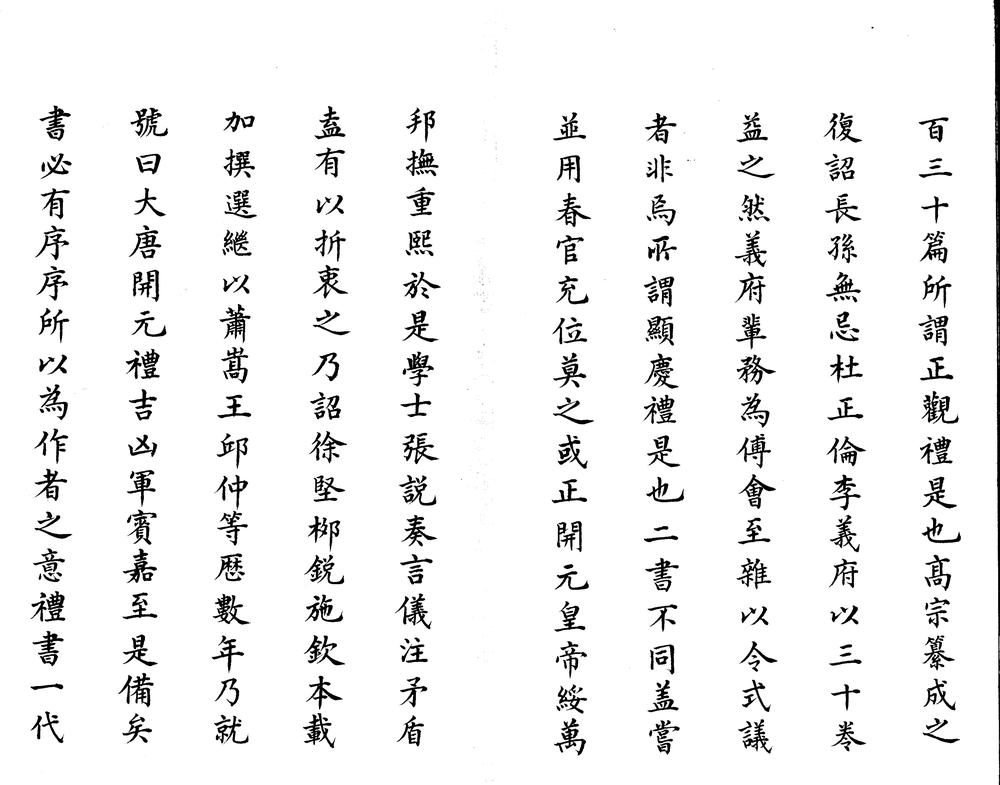 百三十篇所謂正觀禮是也髙宗纂成之
復詔長孫無忌杜正倫李義府以三十卷
益之然義府輩務為傅會至雜以令式議
者非焉所謂顯慶禮是也二書不同盖嘗
並用春官充位莫之或正開元皇帝綏萬
邦撫重熙於是學士張説奏言儀注矛盾
盍有以折衷之乃詔徐堅栁鋭施欽本載
加撰選繼以蕭嵩王邱仲等歴數年乃就
號曰大唐開元禮吉凶軍賓嘉至是備矣
書必有序序所以為作者之意禮書一代